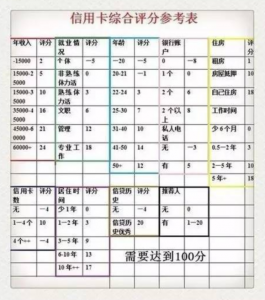 信用卡综合评分参考表
年收入 评分 就业情况 评分 年龄 评分 银行账户 评分 住房 评分
-15000 2 个体 -5 -20 -5 无 -8 租房
15000-25000 5 非熟练体力活 20-21 -1 1个 0 房屋抵押
25000-35000 10 熟练体力活 22-24 5 2个 6 自己住房
35000-45000 16 文职 25-30 7 2个以上 8 工作时间
45000-60000 21 管理 12 31-40 10 私人电话 少6个月 0
60000+ 24 专业工作 18 41-50 14 无 -3 0.5-2年 3
50+ 12 有 5 2-5年 10
5年+ 18
信用卡数 评分 居住时间 评分 信贷历史 评分 推荐人
无 -4 少1年 0 无 -4 无 0
1-4个 10 1-2年 3 信贷历史优秀 20 有 1-20
4个++ -4 3-5年 9
6-10年 13
10年++ 17
需要达到100分